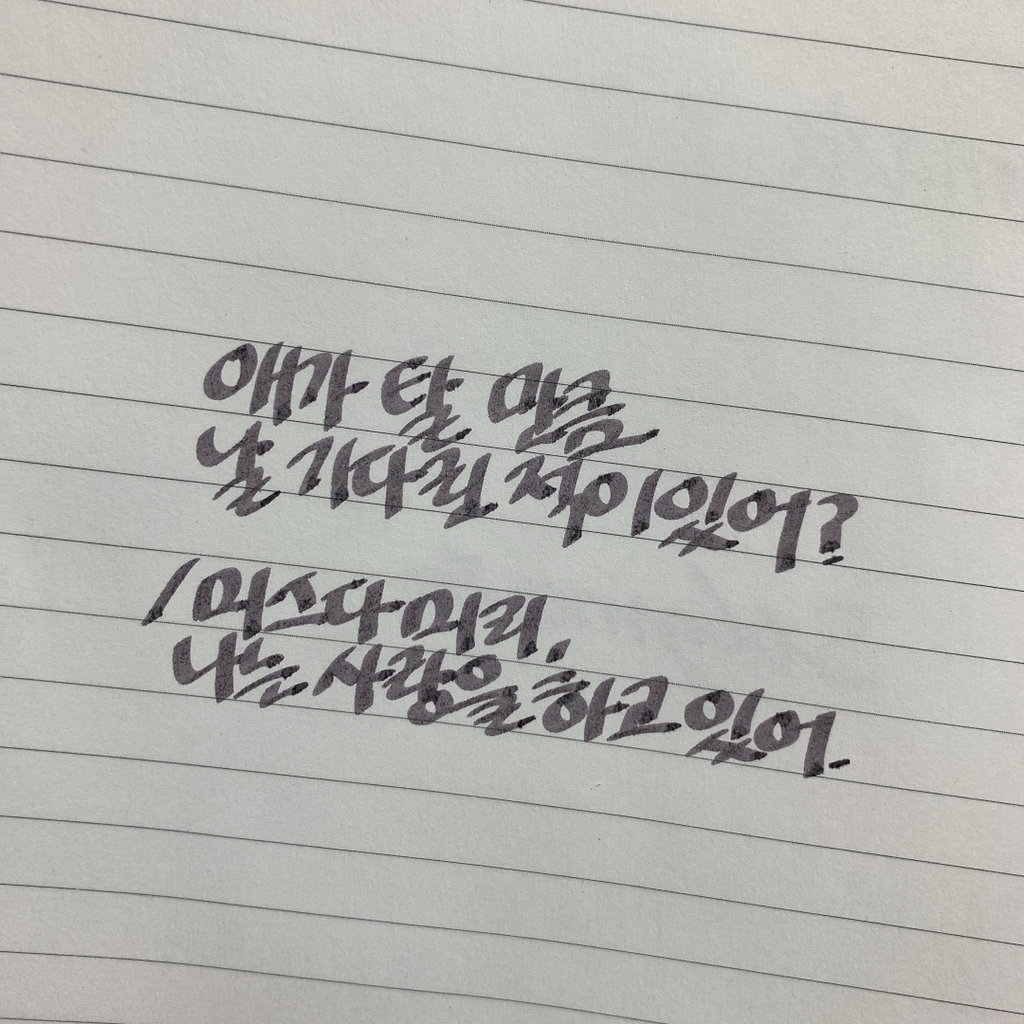 애가 탈 만큼
날 기다린 적이 있어?
/ 머스다 머리,
나는 사랑을 하고 있어.